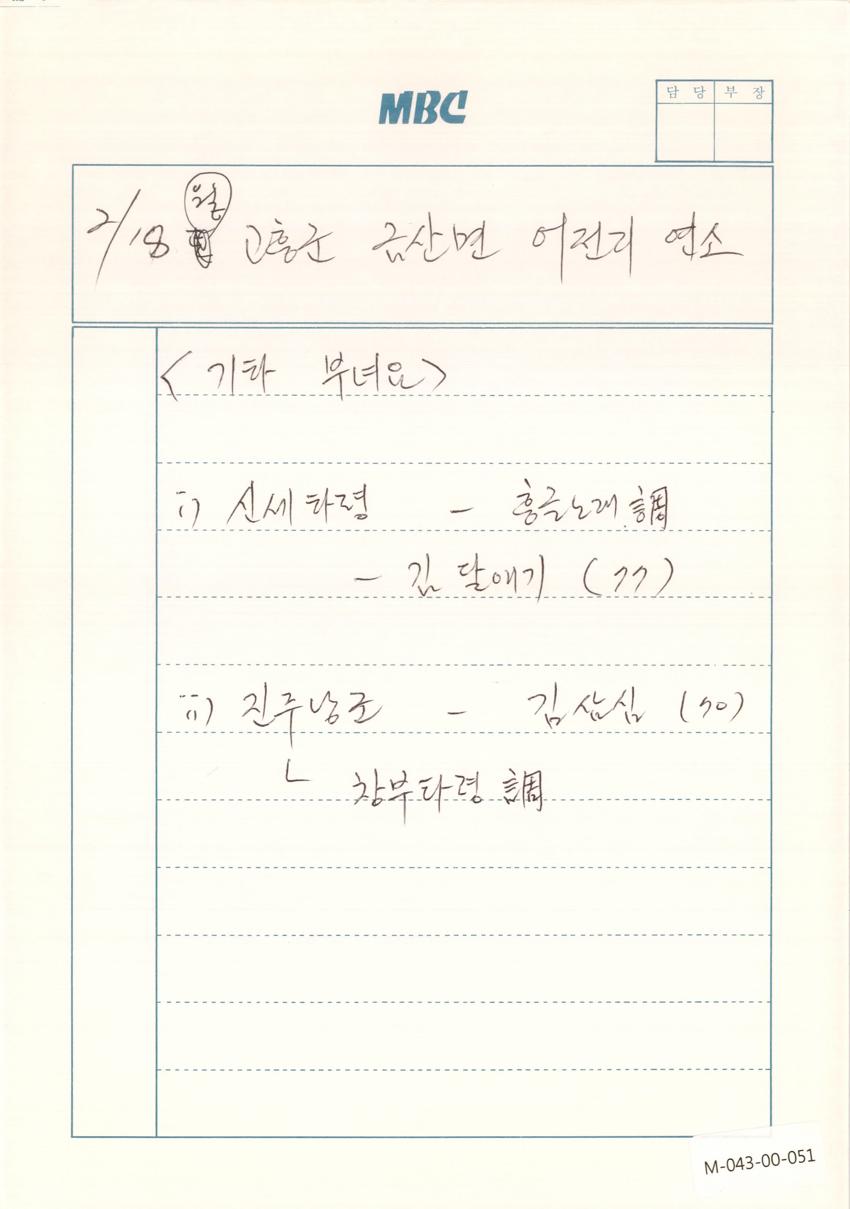 MBC
담 당 부 장
2/18 월 고흥군 금산면 어전리 연소
<기타 부녀요>
i) 신세타령 - 흥글노래調
- 김달애기 (77)
ii) 진주낭군 - 김삼심 (70)
└ 창부타령調
M-043-00-051